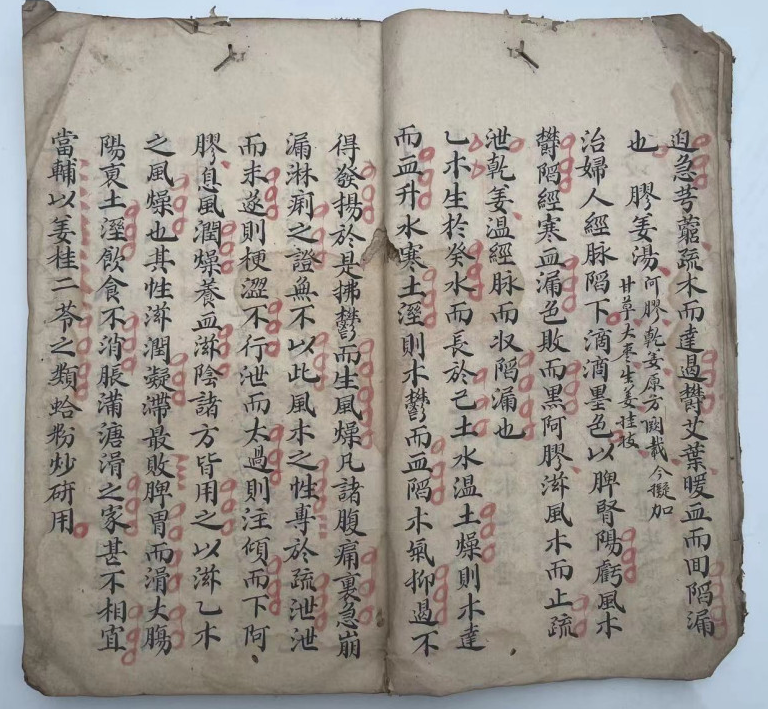 迫急芎藭疏木而達遏欝艾葉暖血而回陷漏
也　膠姜湯　阿膠乾姜原方闕載今擬加
甘草大棗生姜桂枝
治婦人經脉陷下滴滴墨色以脾腎陽虧風木
欝陷經寒血漏色敗而黑阿膠滋風木而止疏
泄乾姜温經脉而収陷漏也
乙木生於癸水而長於己土水温土燥則木達
而血升水寒土溼則木鬱而血陷木氣抑遏不
得發揚於是拂鬱而生風燥凡諸腹痛裏急崩
漏淋痢之證無不以此風木之性專於疏泄泄
而未遂則梗澀不行泄而太過則注傾而下阿
膠息風潤燥養血滋陰諸方皆用之以滋乙木
之風燥也其性滋潤凝滯最敗脾胃而滑大膓
陽衰土溼飲食不消脹滿溏滑之家甚不相宜
當輔以姜桂二苓之類蛤粉炒研用